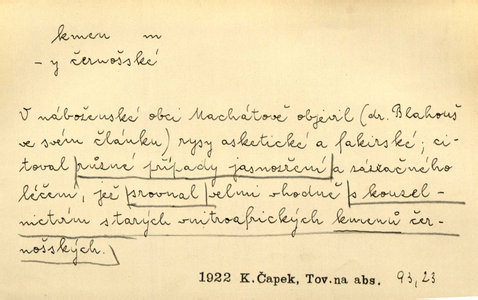 kmen m
-y černošské
V náboženské obci Machátově objevil (dr. Blahouš
ve svém článku) rysy asketické a fakirské; ci-
toval různé případy jasnozření a zázračného
léčení, jež srovnal velmi vhodně s kouzel-
nictvím starých vnitroafrických kmenů čer-
nošských.
1922 K.Čapek, Tov.na abs. 93,23